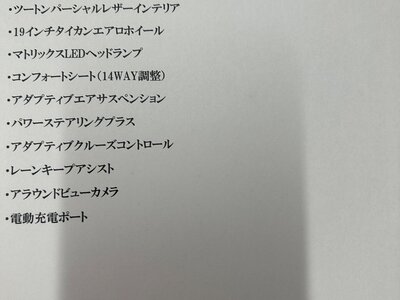 ・ツートンパーシャルレザーインテリア
・19インチタイカンエアロホイール
・マトリックスLEDヘッドランプ
・コンフォートシート(14WAY調整)
・アダプティブエアサスペンション
・パワーステアリングプラス
・アダプティブクルーズコントロール
・レーンキープアシスト
・アラウンドビューカメラ
・電動充電ポート